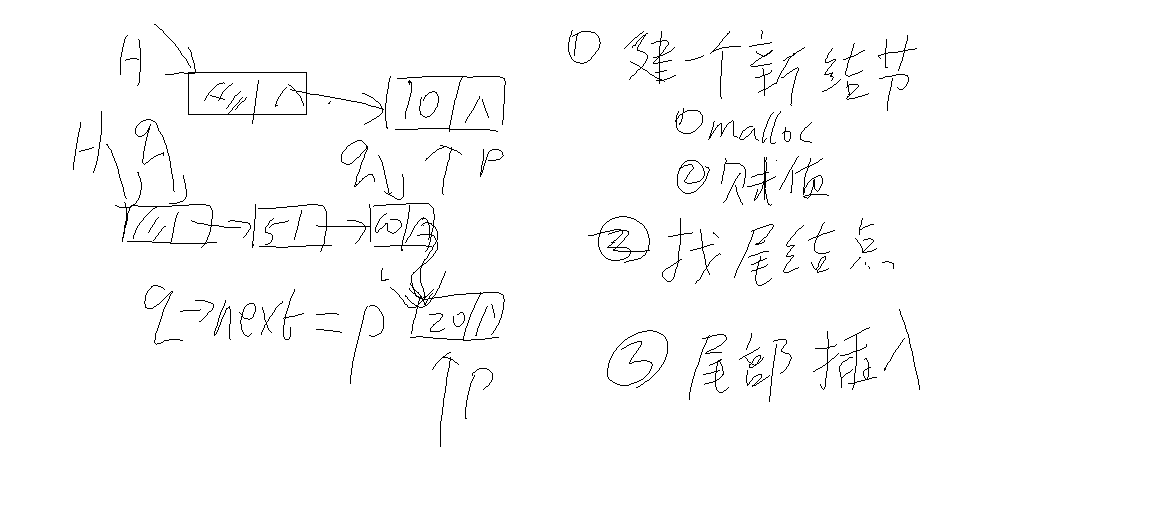 H
10 ∧
p
H q
q
5
10 ∧
q→next=p
20 ∧
p
① 建一个新结节
① malloc
② 赋值
② 找尾结点
③ 尾部插入